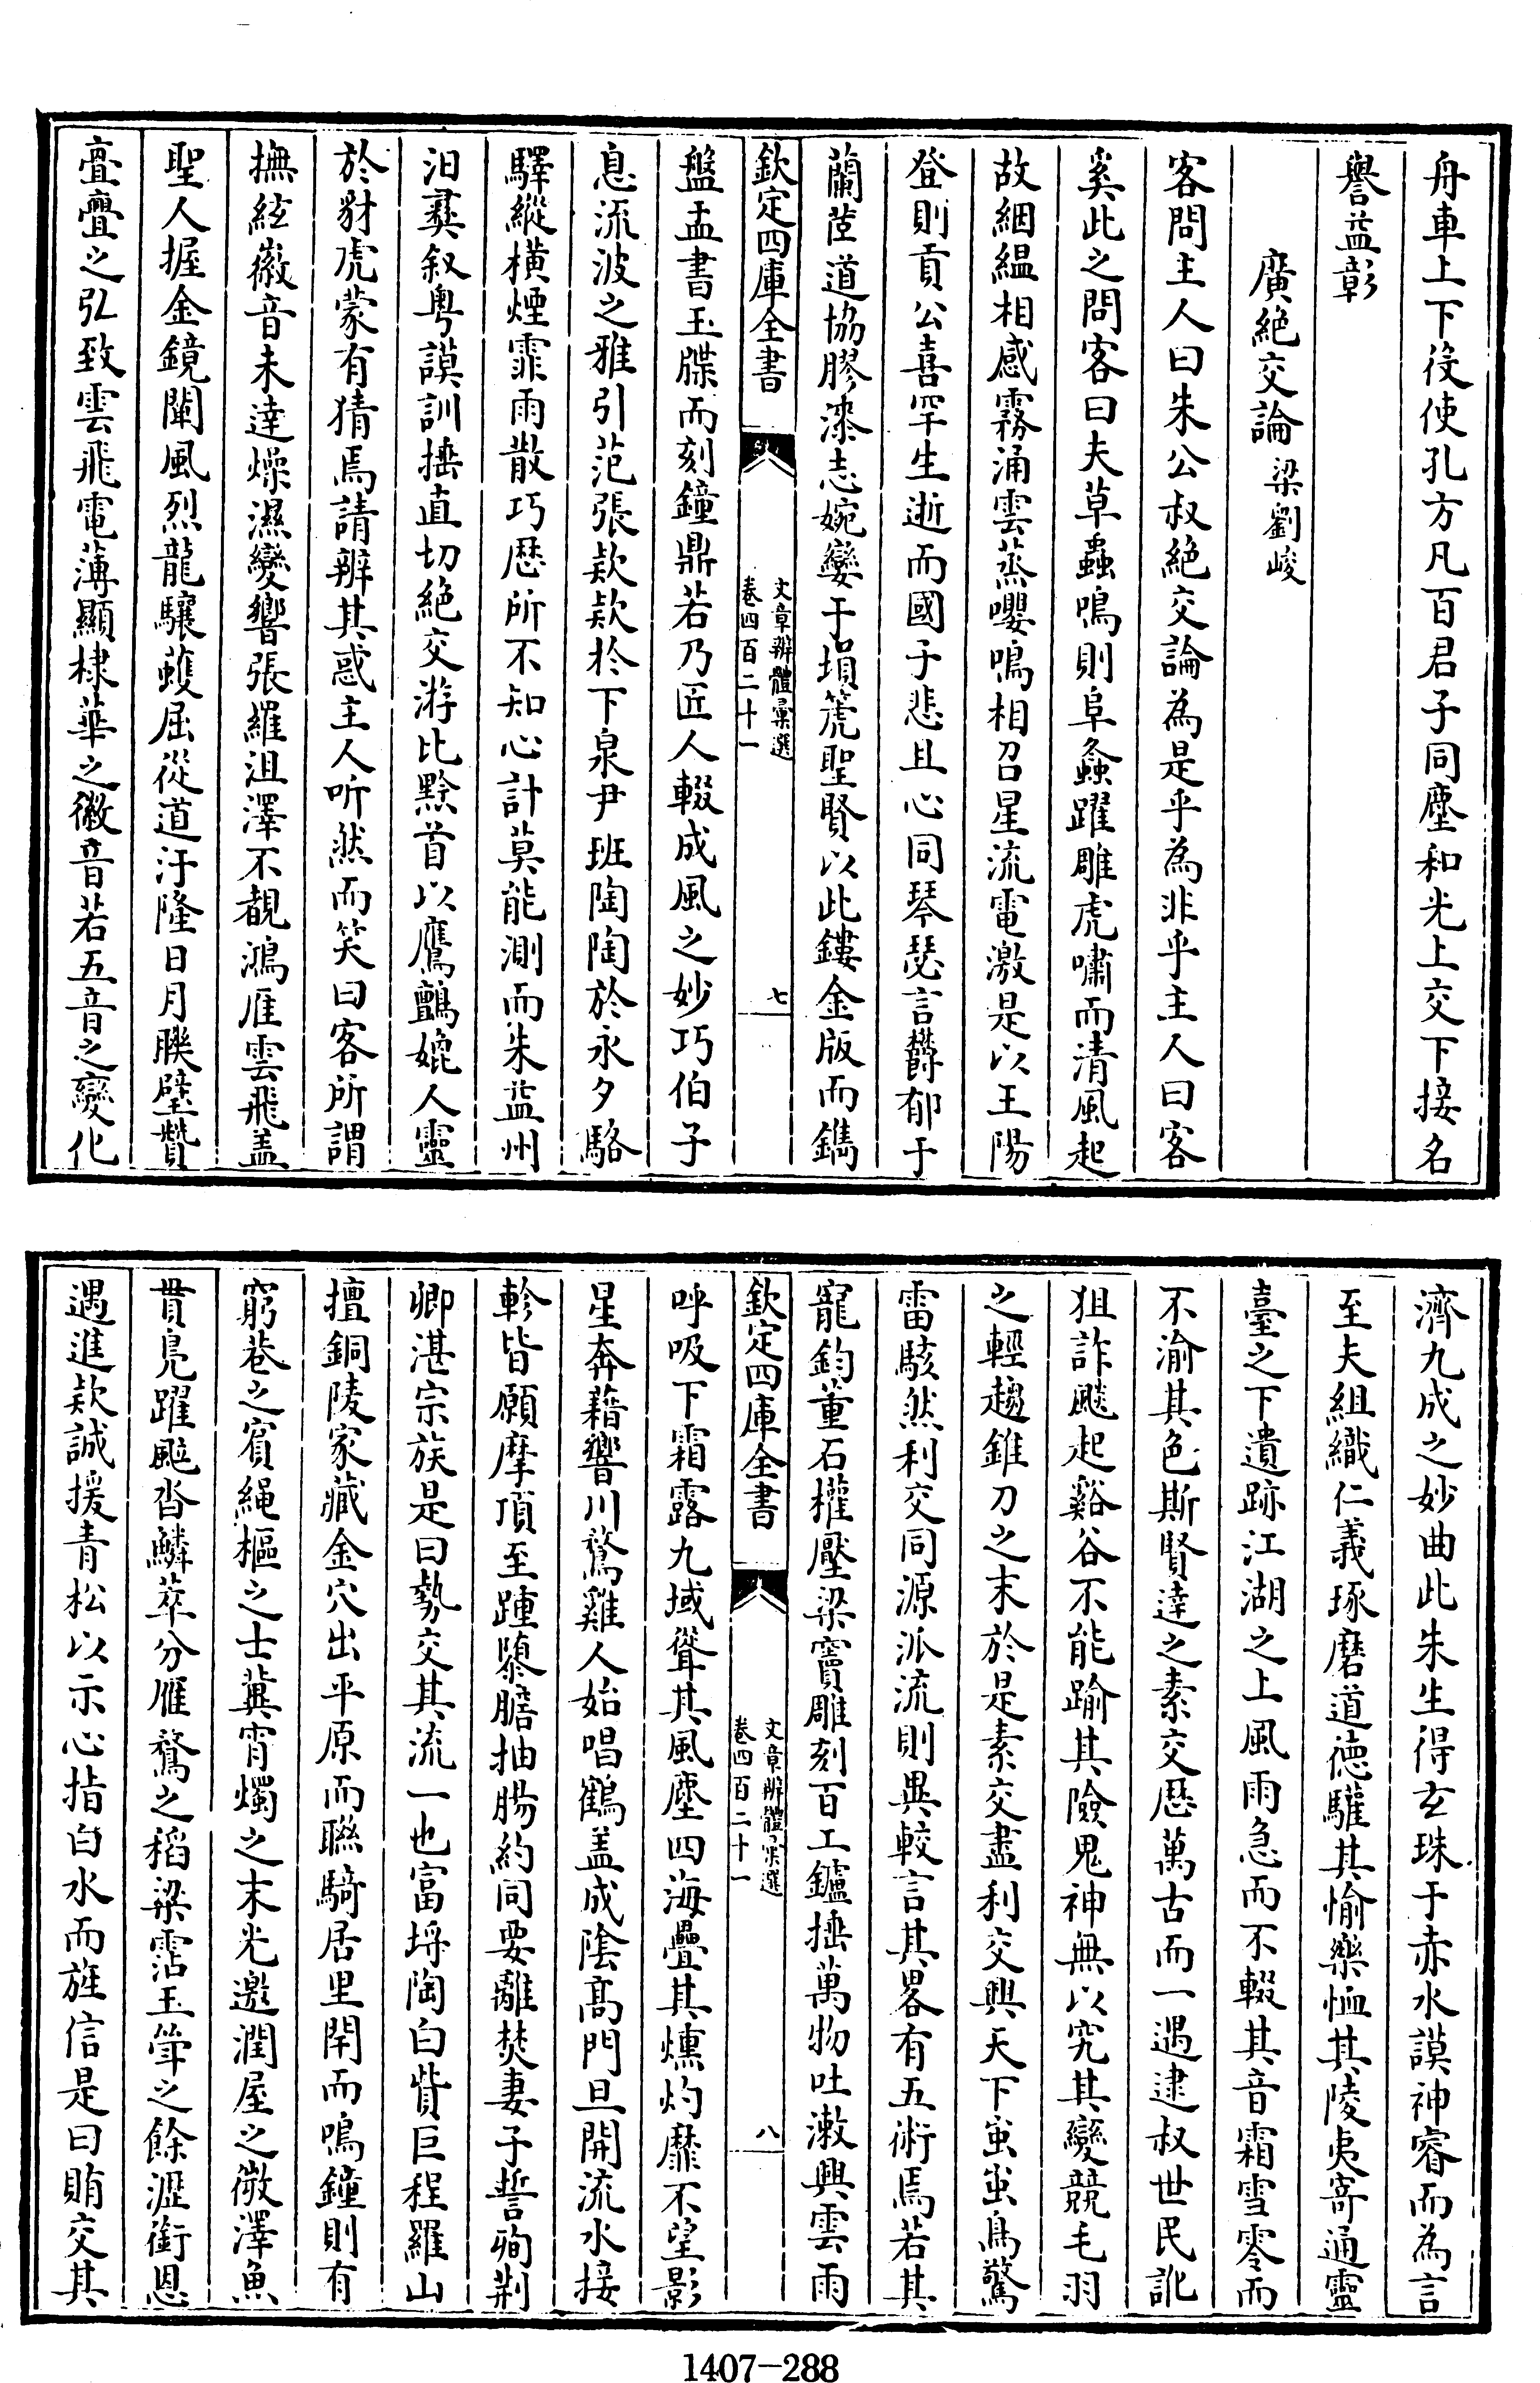 舟車上下役使孔方凡百君子同塵和光上交下接名
譽益彰
廣絶交論 梁劉峻
客問主人曰朱公叔絶交論為是乎為非乎主人曰客
奚此之問客曰夫草蟲鳴則阜螽躍雕虎嘯而清風起
故絪緼相感霧涌雲蒸嚶鳴相召星流電激是以王陽
登則貢公喜罕生逝而國子悲且心同琴瑟言欝郁于
蘭茝道協膠漆志婉孌于塤箎聖賢以此鏤金版而鐫
欽定四庫全書
文章辨體彙選
卷四百二十一
七
盤盂書玉牒而刻鐘鼎若乃匠人輟成風之妙巧伯子
息流波之雅引范張欵欵於下泉尹班陶陶於永夕駱
驛縱横煙霏雨散巧厯所不知心計莫能測而朱益州
汩彛叙粤謨訓捶直切絶交游比黔首以鷹鸇媲人靈
於豺虎蒙有猜焉請辨其惑主人听然而笑曰客所謂
撫絃徽音未達燥濕變響張羅沮澤不覩鴻雁雲飛盖
聖人握金鏡闡風烈龍驤蠖屈從道汙隆日月聨璧贊
亹亹之弘致雲飛電薄顯棣華之徽音若五音之變化
濟九成之妙曲此朱生得玄珠于赤水謨神睿而為言
至夫組織仁義琢磨道徳驩其愉樂恤其陵夷寄通靈
臺之下遺跡江湖之上風雨急而不輟其音霜雪零而
不渝其色斯賢達之素交厯萬古而一遇逮叔世民訛
狙詐飈起谿谷不能踰其險鬼神無以究其變競毛羽
之輕趨錐刀之末於是素交盡利交興天下蚩蚩鳥驚
雷駭然利交同源派流則異較言其畧有五術焉若其
寵鈞董石權壓梁竇雕刻百工鑪捶萬物吐漱興雲雨
欽定四庫全書
文章辨體彙選
卷四百二十一
八
呼吸下霜露九域聳其風塵四海疊其燻灼靡不望影
星奔藉響川騖雞人始唱鶴盖成隂髙門旦開流水接
軫皆願摩頂至踵隳膽抽腸約同要離焚妻子誓殉荆
卿湛宗族是曰勢交其流一也富埒陶白貲巨程羅山
擅銅陵家藏金穴出平原而聯騎居里閈而鳴鐘則有
窮巷之賓繩樞之士冀宵燭之末光邀潤屋之微澤魚
貫鳬躍颯沓鱗萃分雁鶩之稻粱霑玉斝之餘瀝銜恩
遇進欵誠援青松以示心指白水而旌信是曰賄交其
1407-288